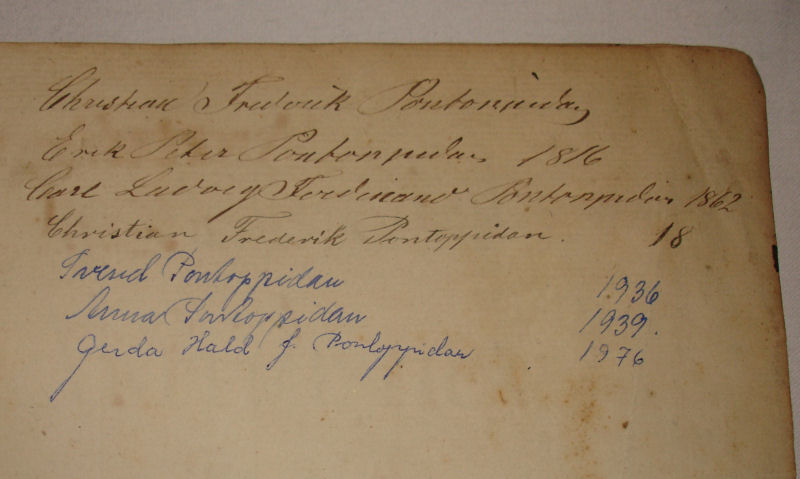 Christian Frederik Pontoppidan
Erik Peter Pontoppidan 1816
Carl Ludvig Ferdinand Pontoppidan 1862
Christian Frederik Pontoppidan. 18
Svend Pontoppidan 1936
Anna Pontoppidan 1939.
Gerda Hald f. Pontoppidan 1976